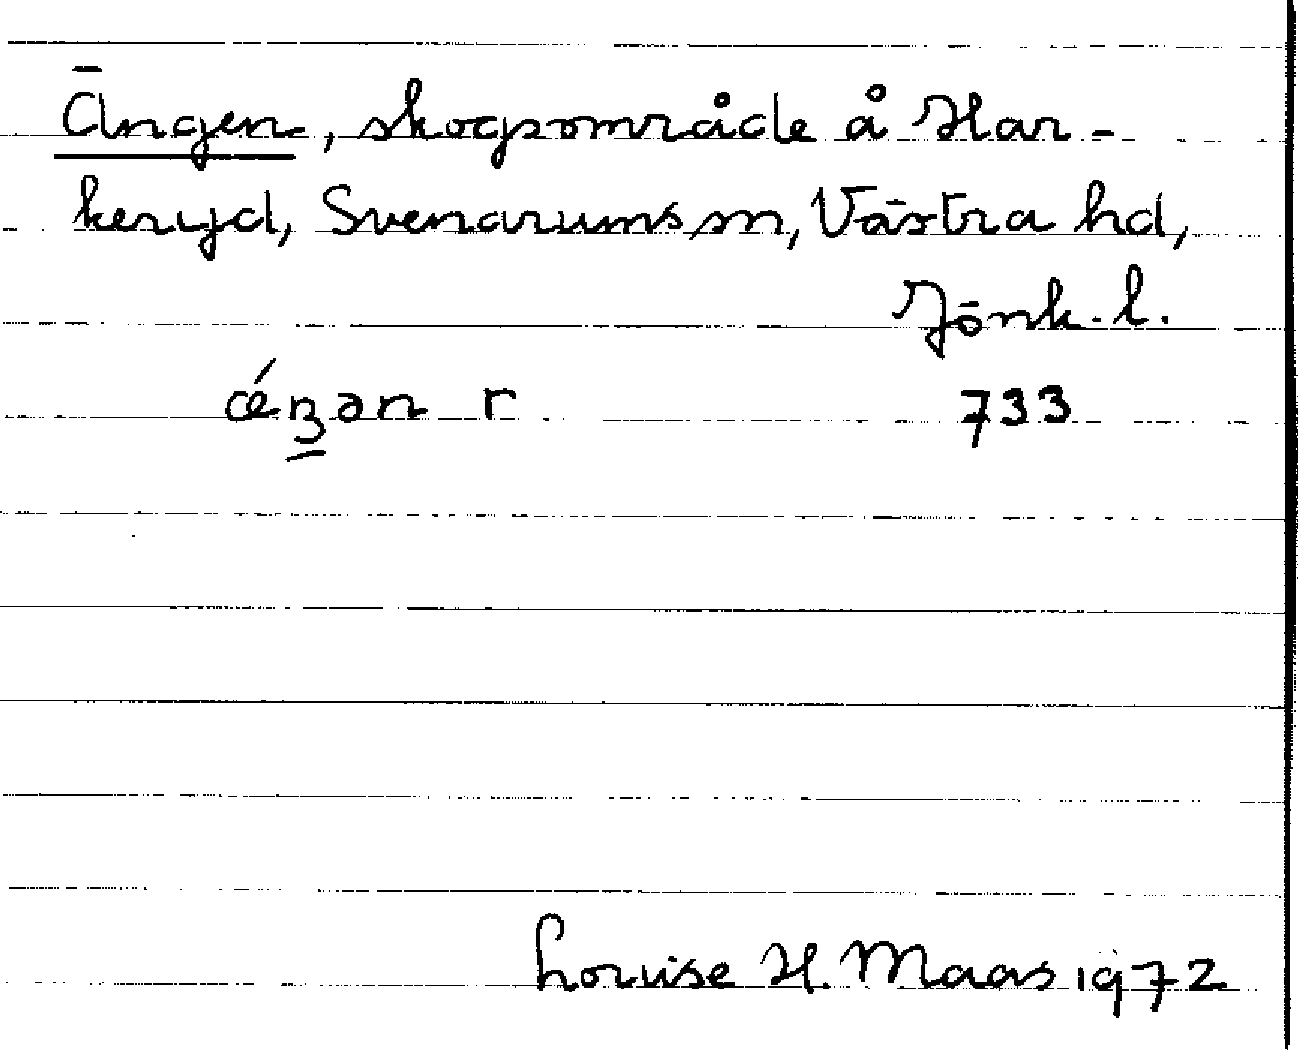 Ängen, skogsområde å Har-
keryd, Svenarums sn, Västra hd,
Jönk. l.
ǽŋən r 733
Louise H. Maas 1972